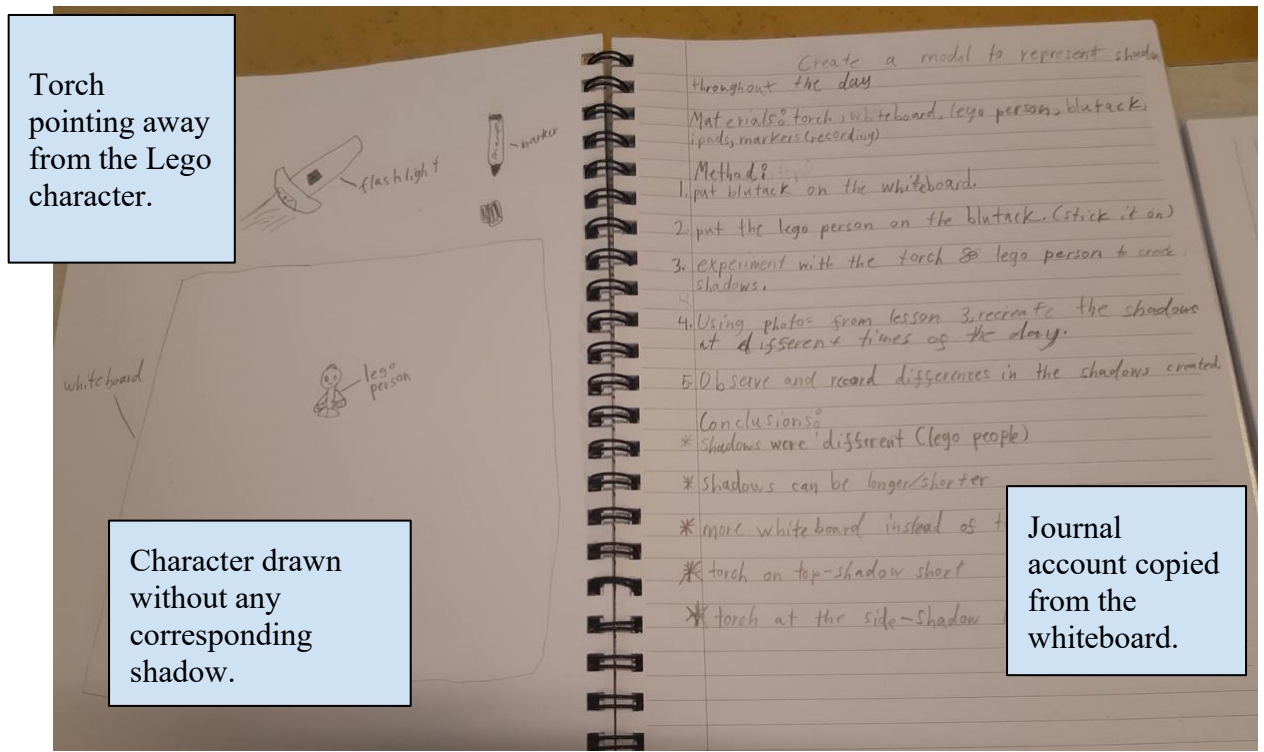 Torch
pointing away
from the Lego
character.
marker
flashlight
whiteboard
lego
person
Character drawn
without any
corresponding
shadow.
Create a model to represent shadow
throughout the day
Materials: torch, whiteboard, lego person, blutack,
ipads, markers (recording)
Method:
1. put blutack on the whiteboard.
2. put the lego person on the blutack. (stick it on)
3. experiment with the torch & lego person to create
shadows.
4. Using photos from lesson 3, recreate the shadows
at different times of the day.
5. Observe and record differences in the shadows created.
Conclusions:
* Shadows were different (lego people)
* shadows can be longer/shorter
* more whiteboard instead of
* torch on top-shadow short
* torch at the side-shadow
Journal
account copied
from the
whiteboard.